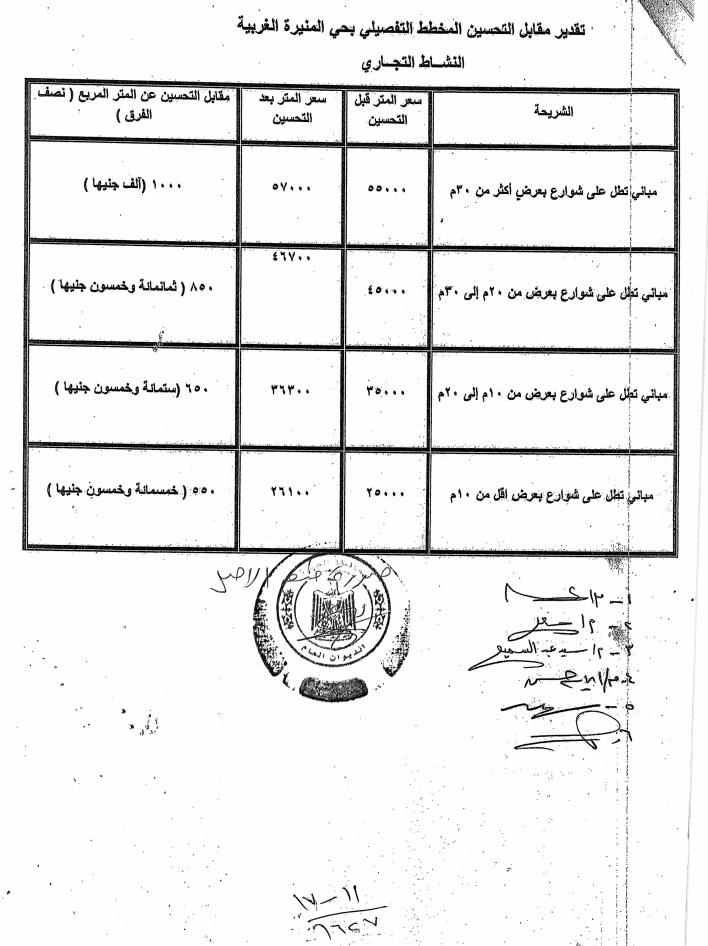 تقدير مقابل التحسين المخطط التفصيلي بحي المنيرة الغربية
النشاط التجاري
الشريحة
سعر المتر قبل التحسين
سعر المتر بعد التحسين
مقابل التحسين عن المتر المربع ( نصف الفرق )
مباني تطل على شوارع بعرض أكثر من ٣٠م
٥٥٠٠٠
٥٧٠٠٠
١٠٠٠ (ألف جنيها )
مباني تطل على شوارع بعرض من ٢٠م إلى ٣٠م
٤٥٠٠٠
٤٦٧٠٠
٨٥٠ ( ثمانمائة وخمسون جنيها )
مباني تطل على شوارع بعرض من ١٠م إلى ٢٠م
٣٥٠٠٠
٣٦٣٠٠
٦٥٠ (ستمائة وخمسون جنيها )
مباني تطل على شوارع بعرض اقل من ١٠م
٢٥٠٠٠
٢٦١٠٠
٥٥٠ ( خمسمائة وخمسون جنيها )
صورة طبق الاصل
الديوان العام
١-
٢-
٣- م/ سيد عبد السميع
٤-
٥-
٦-